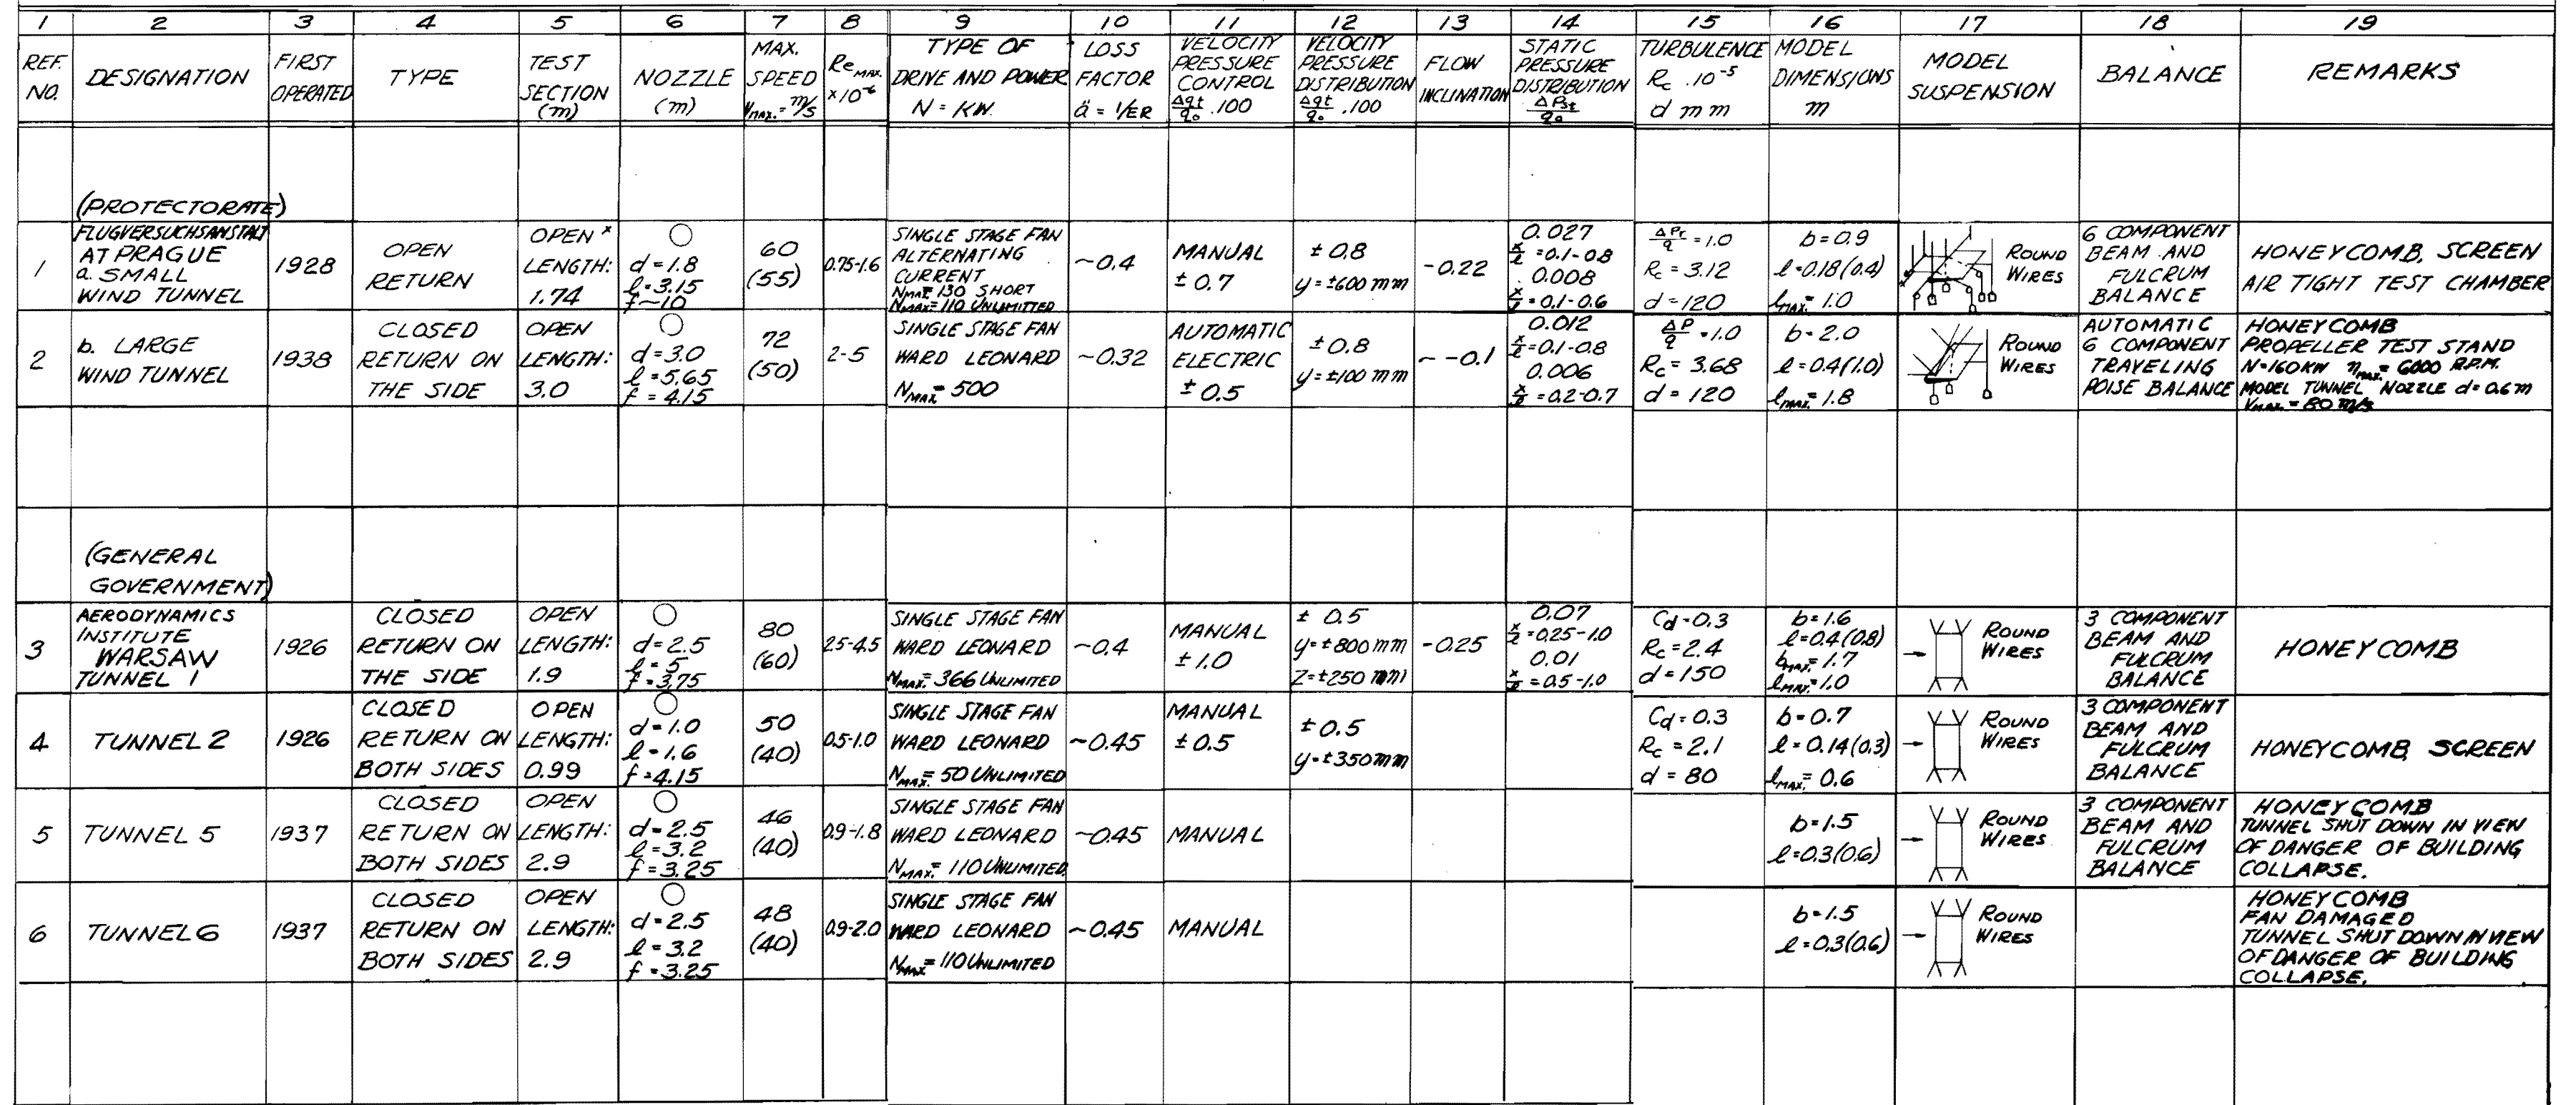 1 2 3 4 5 6 7 8 9 10 11 12 13 14 15 16 17 18 19
REF. NO.
DESIGNATION
FIRST OPERATED
TYPE
TEST SECTION (m)
NOZZLE (m)
MAX. SPEED V MAX. = m/s
Re MAX. ×10⁻⁶
TYPE OF DRIVE AND POWER N = KW.
LOSS FACTOR ä = 1/ER
VELOCITY PRESSURE CONTROL Δqt/q₀ .100
VELOCITY PRESSURE DISTRIBUTION Δqt/q₀ .100
FLOW INCLINATION
STATIC PRESSURE DISTRIBUTION ΔPst/q₀
TURBULENCE Rc .10⁻⁵ d mm
MODEL DIMENSIONS m
MODEL SUSPENSION
BALANCE
REMARKS
(PROTECTORATE)
1
FLUGVERSUCHSANSTALT
AT PRAGUE
a. SMALL
WIND TUNNEL
1928
OPEN
RETURN
OPEN ×
LENGTH:
1.74
d=1.8
l=3.15
f~10
60
(55)
0.75-1.6
SINGLE STAGE FAN
ALTERNATING
CURRENT
N MAX = 130 SHORT
N MAX = 110 UNLIMITTED
~0.4
MANUAL
± 0.7
± 0.8
y=±600 mm
-0.22
0.027
x/l = 0.1-0.8
0.008
x/l = 0.1-0.6
ΔPr/q = 1.0
Rc = 3.12
d = 120
b=0.9
l=0.18(0.4)
l MAX. = 1.0
ROUND
WIRES
6 COMPONENT
BEAM AND
FULCRUM
BALANCE
HONEYCOMB, SCREEN
AIR TIGHT TEST CHAMBER
2
b. LARGE
WIND TUNNEL
1938
CLOSED
RETURN ON
THE SIDE
OPEN
LENGTH:
3.0
d=3.0
l=5.65
f=4.15
72
(50)
2-5
SINGLE STAGE FAN
WARD LEONARD
N MAX = 500
~0.32
AUTOMATIC
ELECTRIC
± 0.5
±0.8
y=±100 mm
~ -0.1
0.012
x/l = 0.1-0.8
0.006
x/l = 0.2-0.7
ΔP/q = 1.0
Rc = 3.68
d = 120
b=2.0
l=0.4(1.0)
l MAX. = 1.8
ROUND
WIRES
AUTOMATIC
6 COMPONENT
TRAVELING
POISE BALANCE
HONEYCOMB
PROPELLER TEST STAND
N=160KW n MAX. = 6000 R.P.M.
MODEL TUNNEL NOZZLE d=0.6m
V MAX. = 80 m/s
(GENERAL
GOVERNMENT)
3
AERODYNAMICS
INSTITUTE
WARSAW
TUNNEL 1
1926
CLOSED
RETURN ON
THE SIDE
OPEN
LENGTH:
1.9
d=2.5
l=5
f=3.75
80
(60)
2.5-4.5
SINGLE STAGE FAN
WARD LEONARD
N MAX. = 366 UNLIMITED
~0.4
MANUAL
± 1.0
± 0.5
y=±800mm
Z=±250 mm
-0.25
0.07
x/l = 0.25-1.0
0.01
x/l = 0.5-1.0
Cd=0.3
Rc=2.4
d=150
b=1.6
l=0.4(0.8)
b MAX. = 1.7
l MAX. = 1.0
ROUND
WIRES
3 COMPONENT
BEAM AND
FULCRUM
BALANCE
HONEYCOMB
4
TUNNEL 2
1926
CLOSED
RETURN ON
BOTH SIDES
OPEN
LENGTH:
0.99
d=1.0
l=1.6
f=4.15
50
(40)
0.5-1.0
SINGLE STAGE FAN
WARD LEONARD
N MAX. = 50 UNLIMITED
~0.45
MANUAL
± 0.5
±0.5
y=±350mm
Cd=0.3
Rc=2.1
d=80
b=0.7
l=0.14(0.3)
l MAX. = 0.6
ROUND
WIRES
3 COMPONENT
BEAM AND
FULCRUM
BALANCE
HONEYCOMB, SCREEN
5
TUNNEL 5
1937
CLOSED
RETURN ON
BOTH SIDES
OPEN
LENGTH:
2.9
d=2.5
l=3.2
f=3.25
46
(40)
0.9-1.8
SINGLE STAGE FAN
WARD LEONARD
N MAX. = 110 UNLIMITED
~0.45
MANUAL
b=1.5
l=0.3(0.6)
ROUND
WIRES
3 COMPONENT
BEAM AND
FULCRUM
BALANCE
HONEYCOMB
TUNNEL SHUT DOWN IN VIEW
OF DANGER OF BUILDING
COLLAPSE.
6
TUNNEL 6
1937
CLOSED
RETURN ON
BOTH SIDES
OPEN
LENGTH:
2.9
d=2.5
l=3.2
f=3.25
48
(40)
0.9-2.0
SINGLE STAGE FAN
WARD LEONARD
N MAX = 110 UNLIMITED
~0.45
MANUAL
b=1.5
l=0.3(0.6)
ROUND
WIRES
HONEYCOMB
FAN DAMAGED
TUNNEL SHUT DOWN IN VIEW
OF DANGER OF BUILDING
COLLAPSE.